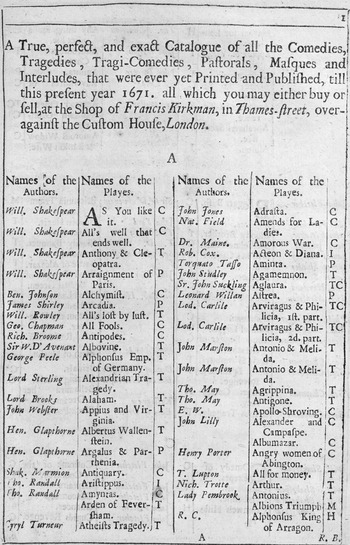 1
A True, perfect, and exact Catalogue of all the Comedies,
Tragedies, Tragi-Comedies, Pastorals, Masques and
Interludes, that were ever yet Printed and Published, till
this present year 1671. all which you may either buy or
sell, at the Shop of Francis Kirkman, in Thames-street, over-
against the Custom House, London.
A
Names of the Authors. Names of the Playes.
Will. Shakespear AS You like it. C
Will. Shakespear All's well that ends well. C
Will. Shakespear Anthony & Cleopatra. T
Will. Shakespear Arraignment of Paris. P
Ben. Johnson Alchymist. C
James Shirley Arcadia. P
Will. Rowley All's lost by lust. T
Geo. Chapman All Fools. C
Rich. Broome Antipodes. C
Sir W. D'Avenant Albovine. T
George Peele Alphonsus Emp. of Germany. T
Lord Sterling Alexandrian Tragedy. T
Lord Brooks Alaham. T
John Webster Appius and Virginia. T
Hen. Glapthorne Albertus Wallenstein. T
Hen. Glapthorne Argalus & Parthenia. P
Shak. Marmion Antiquary. C
Tho. Randall Aristippus. I
Tho. Randall Amyntas. C
Arden of Feversham. T
Cyryl Turneur Atheists Tragedy. T
Names of the Authors. Names of the Playes.
John Jones Adrasta. C
Nat. Field Amends for Ladies. C
Dr. Maine. Amorous War. C
Rob. Cox. Acteon & Diana. I
Torquato Tasso Aminta. P
John Studley Agamemnon. T
Sr. John Suckling Aglaura. TC
Leonard Willan Astrea. P
Lod. Carlile Arviragus & Philicia, 1st. part. TC
Lod. Carlile Arviragus & Philicia, 2d. part. TC
John Marston Antonio & Melida. T
John Marston Antonio & Melida. T
Tho. May Agrippina. T
Tho. May Antigone. T
E. W. Apollo Shroving. C
John Lilly Alexander and Campaspe. C
Albumazar. C
Henry Porter Angry women of Abington. C
T. Lupton All for money. T
Nich. Trotte Arthur. T
Lady Pembrook Antonius. T
Albions Triumph M
R. C. Alphonsus King of Arragon. H
A
R. B.